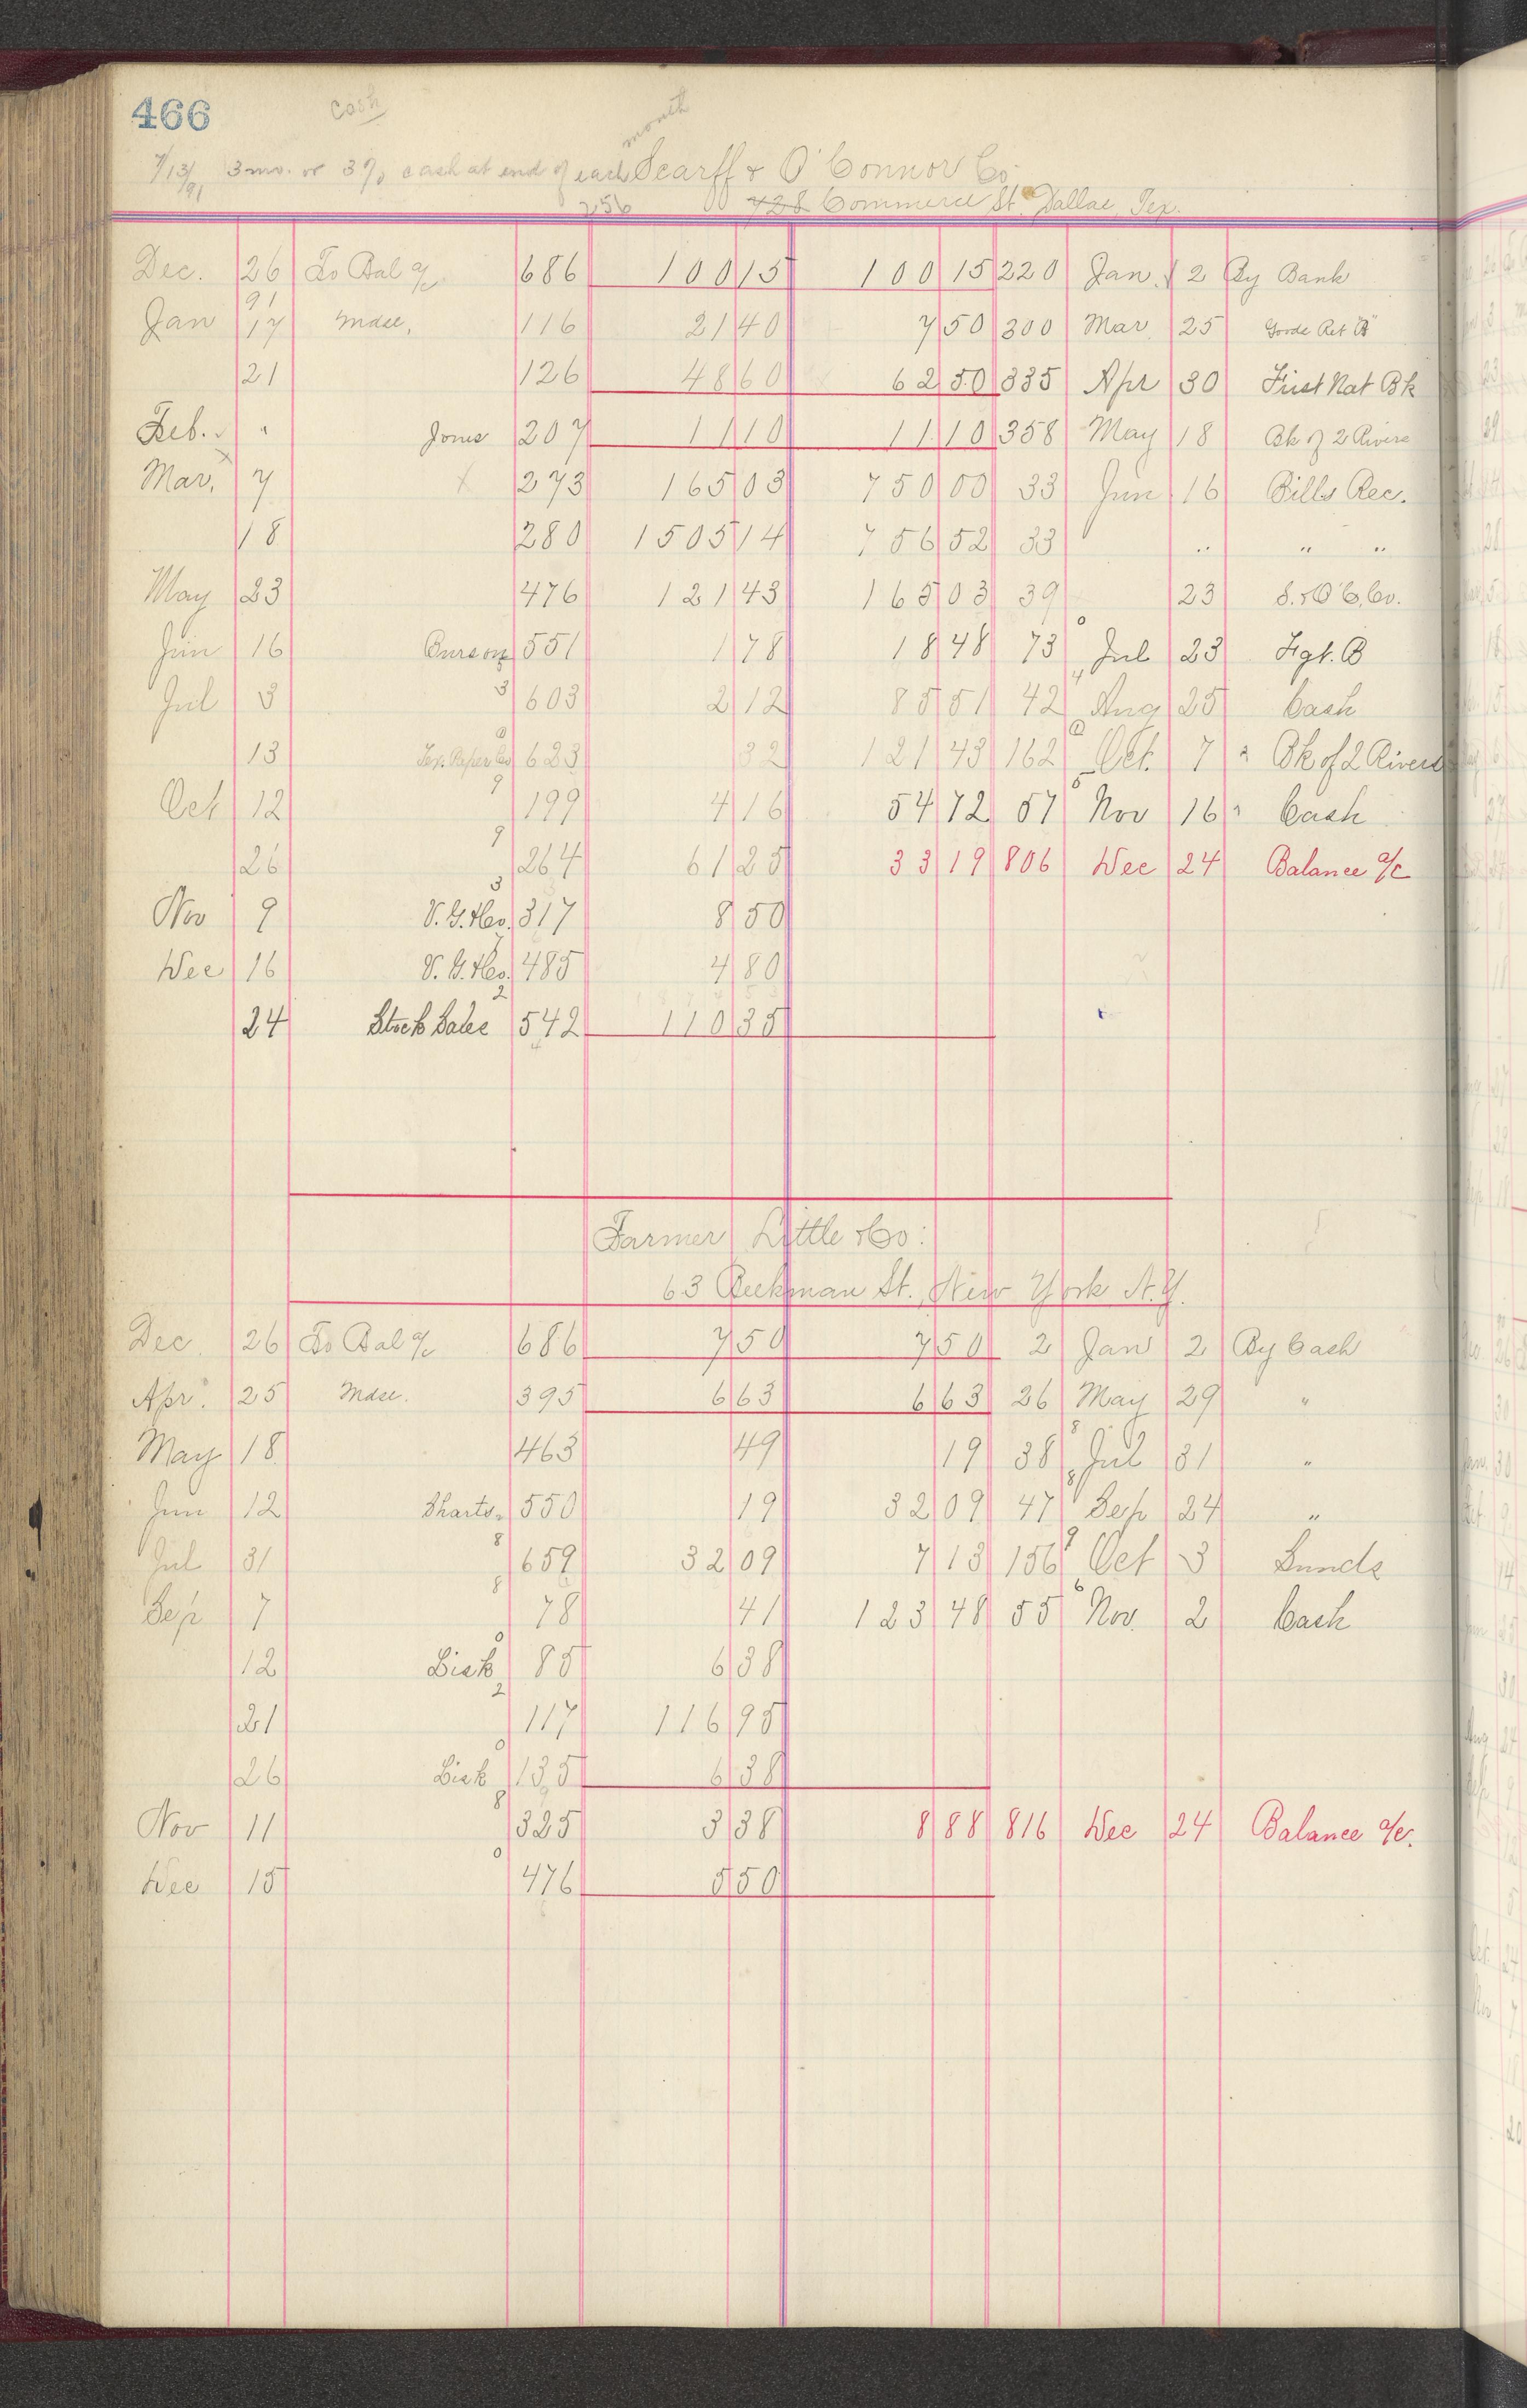 466
cash
month
7/13/91 3 mo. or 3% cash at end of each Scarff & O'Connor Co
256 728 Commerce St. Dallas, Tex.
Dec. 26 To Bal a/c 686 100 15 100 15 220 Jan. 2 By Bank
91
Jan 17 Mdse, 116 21 40 7 50 300 Mar 25 Goods Ret "A"
21 126 48 60 62 50 335 Apr 30 First Nat Bk
Feb. " Jones 207 11 10 11 10 358 May 18 Bk of 2 Rivers
Mar, 7 273 165 03 750 00 33 Jun 16 Bills Rec.
18 280 1505 14 756 52 33 " " "
May 23 476 121 43 165 03 39 23 S. & O'C. Co.
Jun 16 Curson 551 1 78 18 48 73 Jul 23 Fgt. B
Jul 3 603 2 12 85 51 42 Aug 25 Cash
13 Tex. Paper Co 623 32 121 43 162 Oct. 7 " Bk of 2 Rivers
Oct 12 199 4 16 54 72 57 Nov 16 " Cash
26 264 61 25 33 19 806 Dec 24 Balance a/c
Nov 9 V. G. & Co. 317 8 50
Dec 16 V. G. & Co. 485 4 80
24 Stock Sales 542 110 35
Farmer Little & Co:
63 Beekman St., New York N.Y.
Dec. 26 To Bal a/c 686 7 50 7 50 2 Jan 2 By Cash
Apr. 25 Mdse. 395 6 63 6 63 26 May 29 "
May 18 463 49 19 38 Jul 31 "
Jun 12 Sharts. 550 19 32 09 47 Sep 24 "
Jul 31 659 32 09 7 13 156 Oct 3 Sunds
Sep 7 78 41 123 48 55 Nov. 2 Cash
12 Lisk 85 6 38
21 117 116 95
26 Lisk 135 6 38
Nov 11 325 3 38 8 88 816 Dec 24 Balance a/c.
Dec 15 476 5 50